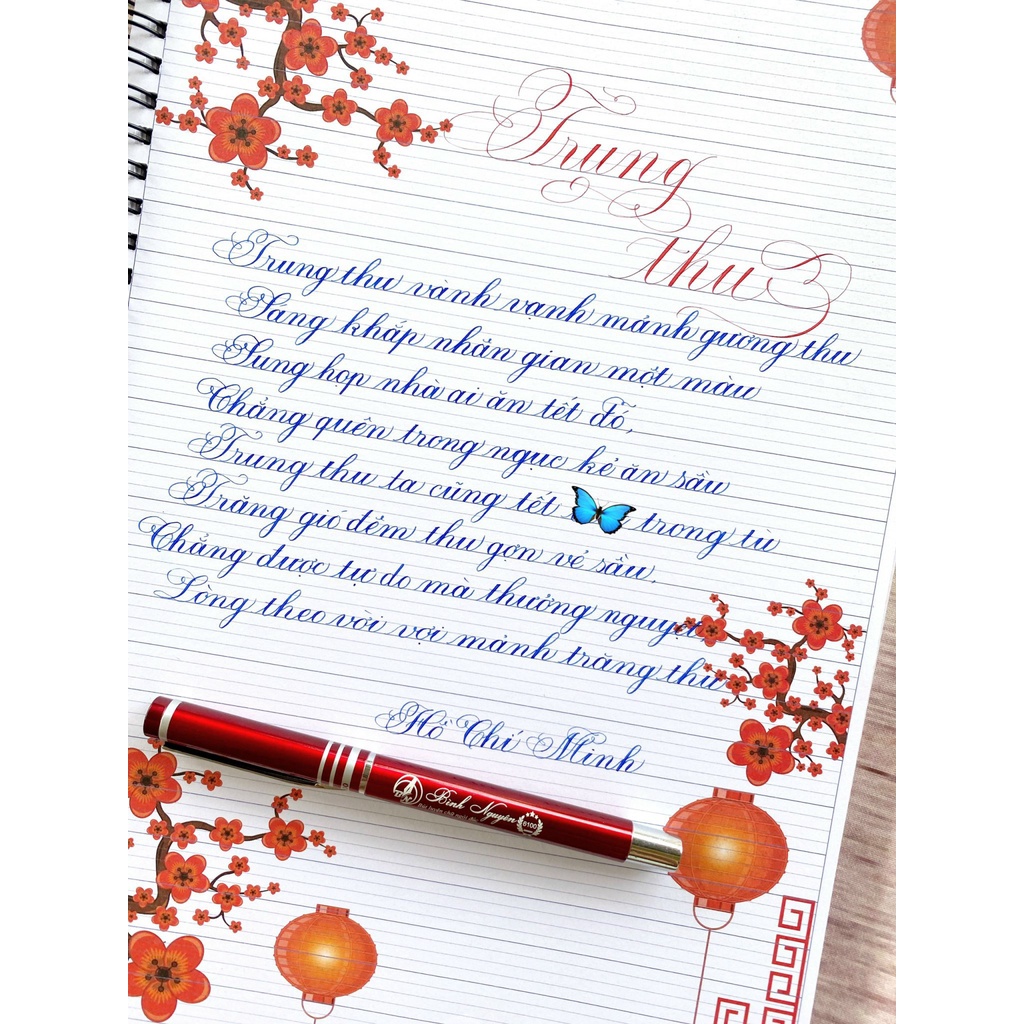 Trung
thu
Trung thu vành vạnh mảnh gương thu
Sáng khắp nhân gian một màu
Sum họp nhà ai ăn tết đó,
Chẳng quên trong ngục kẻ ăn sầu
Trung thu ta cũng tết trong tù
Trăng gió đêm thu gợn vẻ sầu.
Chẳng được tự do mà thưởng nguyệt,
Lòng theo vời vợi mảnh trăng thu
Hồ Chí Minh
Bình Nguyên
8100